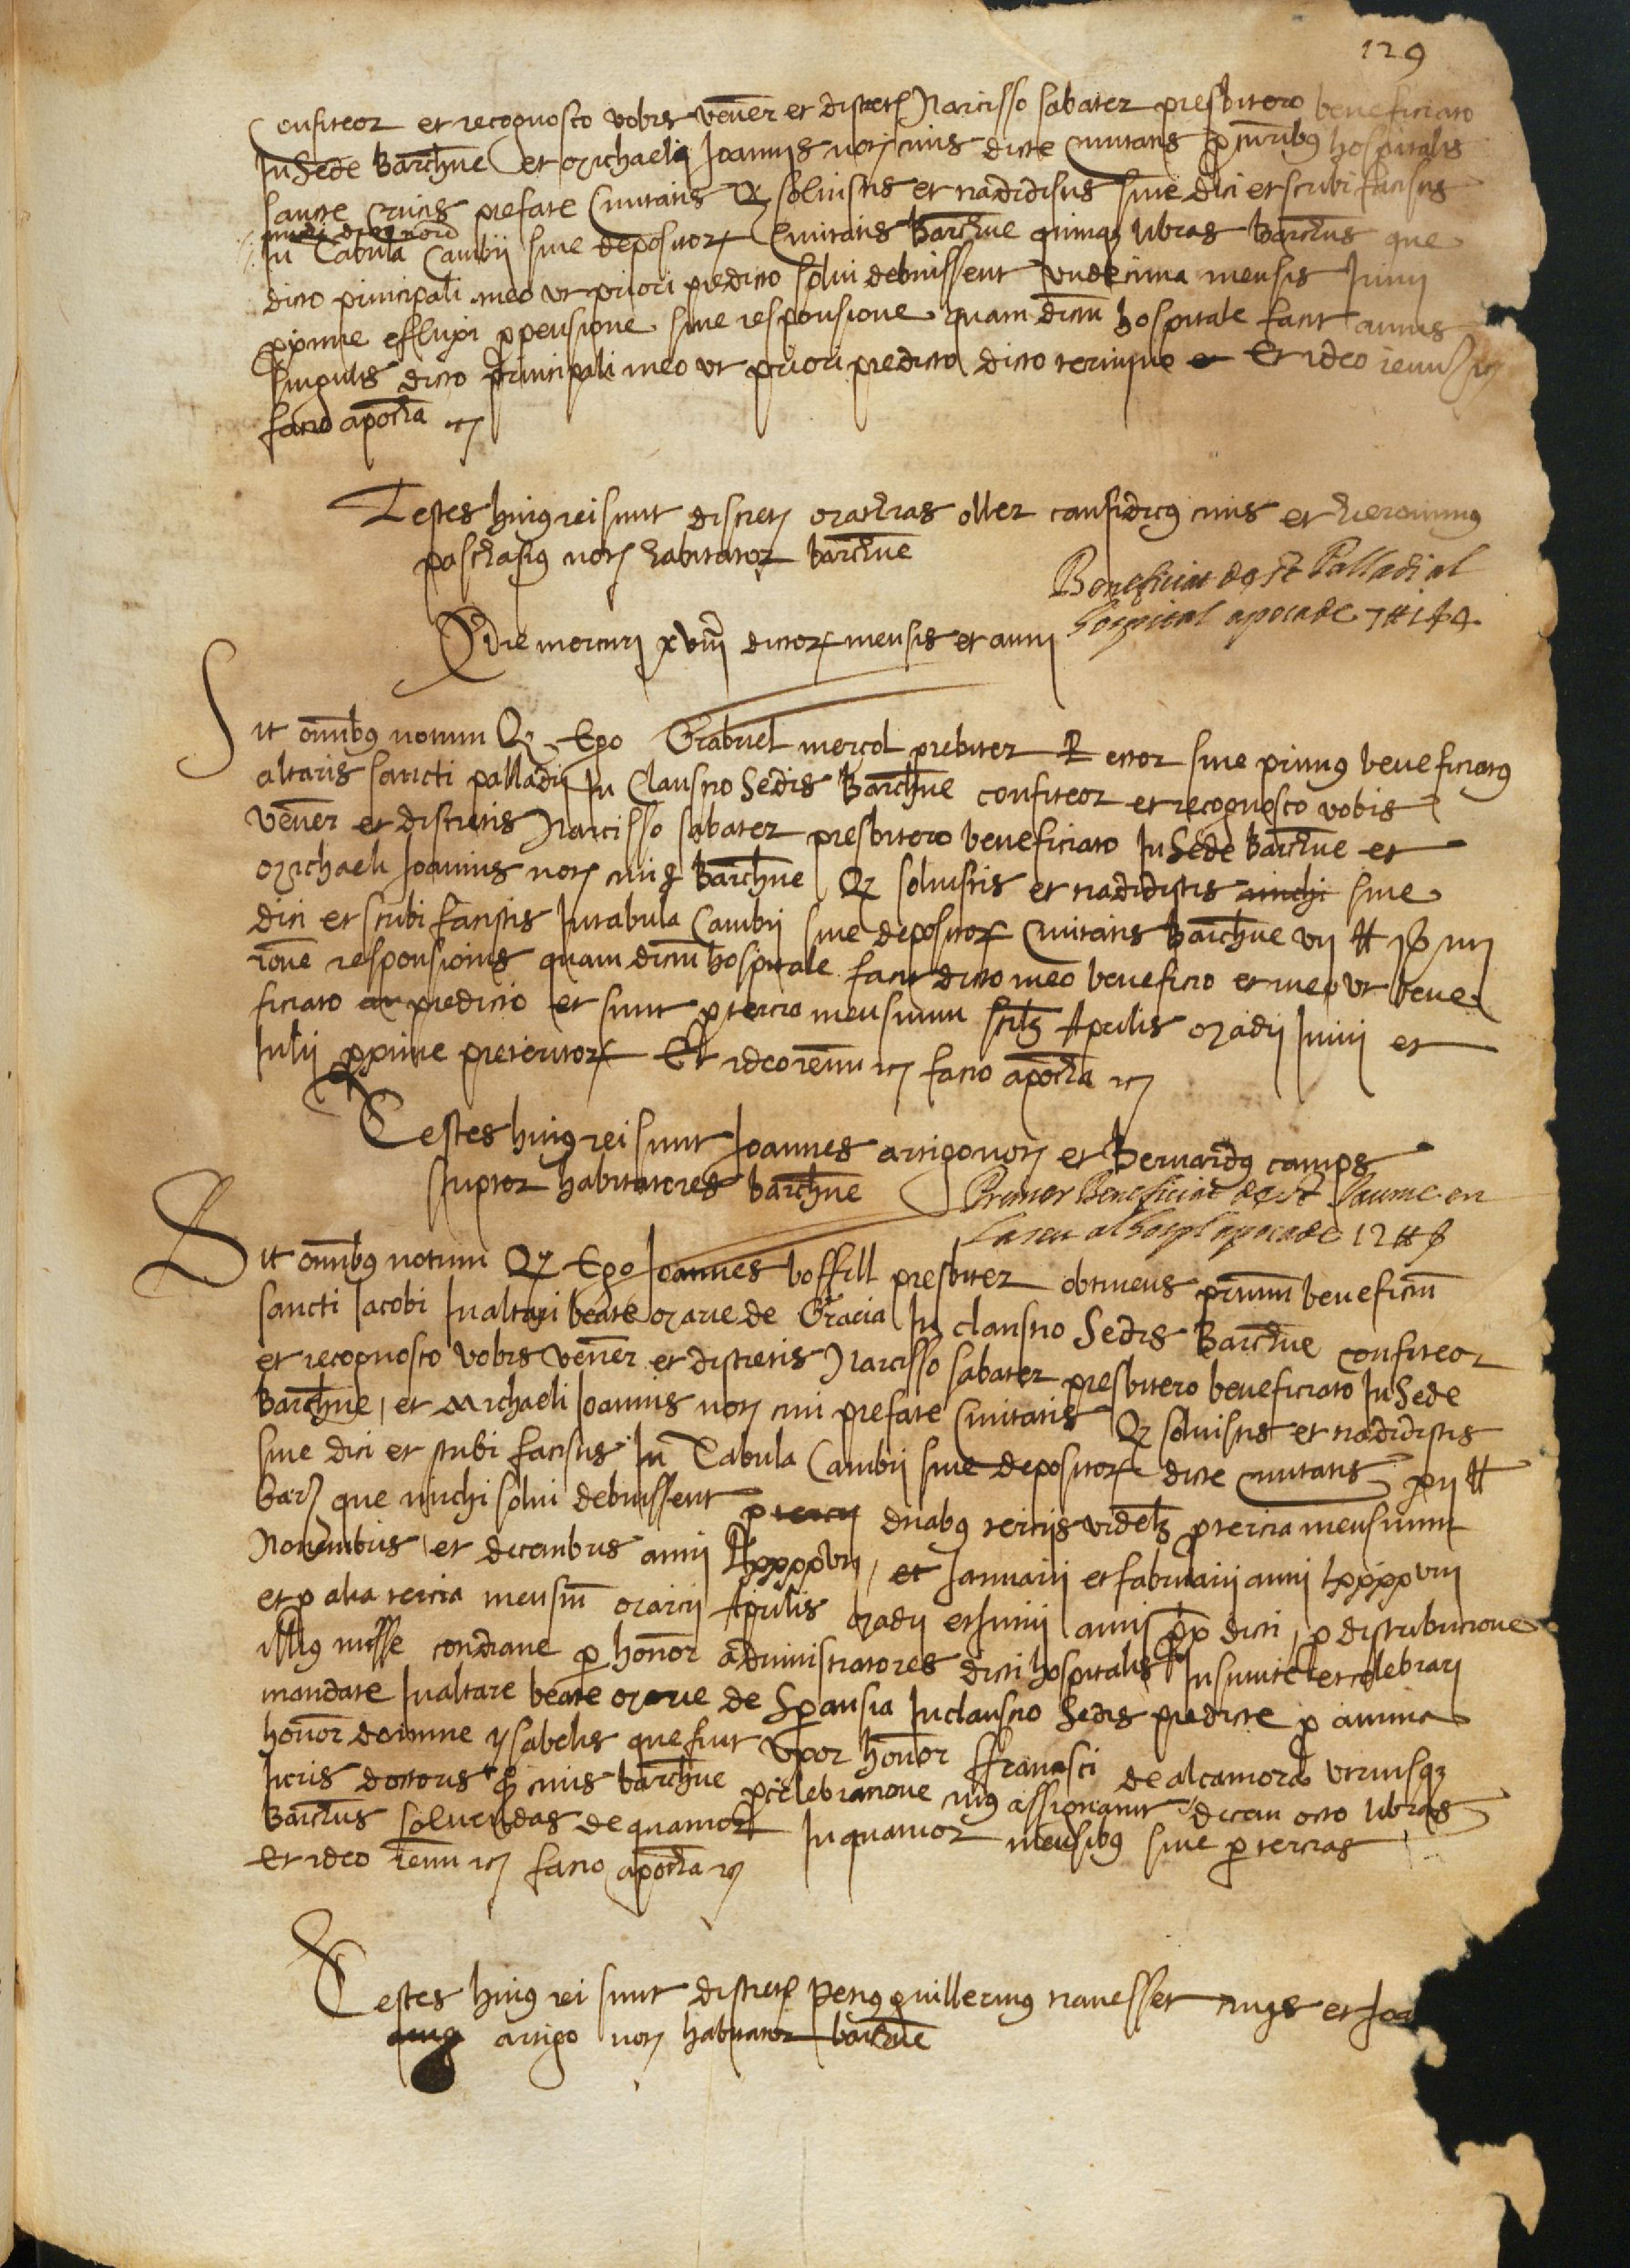 129
Confiteor et recognosco vobis vener et discret Narcisso sabater presbitero beneficiato
In Sede Barchne et Michaeli Joannis not civis dicte Civitatis hospitalis
sancte Crucis prefate Civitatis Q solvistis et tradidistis sive dici et scribi facistis
In Tabula Cambij sive depositor Civitatis Barchne quinq libras Barchns que
dicto principali meo ut priori predicto solvi debuissent undecima mensis Junij
pxime effluxi p pensione sive responsione quam dictm hospitale facit annis
singulis dicto principali meo ut priori predicto dicto termino Et ideo renun
facio apocha
Testes huius rei sunt discret Mathias oller causidicus civis et hieronimus
paschasius not habitator barchne
Beneficiat de st Palladi al
hospital apoca de 7 ₶ 1 ß 4
Die mercurij xviij dictor mensis et anni
Sit omibus notum Q Ego Grabriel mercol prebiter Rector sive primus beneficiatus
altaris sancti palladij In Claustro Sedis Barchne confiteor et recognosco vobis
vener et discretis Narcisso sabater presbitero beneficiato In Sede Barchne et
Michaeli Joannis not civi Barchne Q solvistis et tradidistis michi sive
dici et scribi facistis In tabula Cambij sive depositor Civitatis Barchne vij ₶
rone responsionis quam dictm hospitale facit dicto meo beneficio et meo ut bene
ficiato predicto et sunt p tercia mensium scilz Aprilis Madij Junij et
Julij pxime preteritor Et ideo renun facio apocha
Testes huius rei sunt Joannes artigo not et Bernardus camps
scriptor habitatores barchne
Primer Beneficiat de st Jaume en
la seu al hospl apoca de 12 ₶ ß
Sit omibus notum Q Ego Joannes boffill presbiter obtinens primum beneficium
sancti Jacobi In altari beate Marie de Gracia In claustro Sedis Barchne confiteor
et recognosco vobis vener et discretis Narcisso sabater presbitero beneficiato In Sede
Barchne et Michaeli Joannis not civi prefate Civitatis Q solvistis et tradidistis
sive dici et scribi facistis In Tabula Cambij sive depositor dicte civitatis xij ₶
bar que michi solvi debuissent p tercij duabus tercijs videlz p tercia mensium
Novembris et decembris anni Lxxxxvij et Januarij et fabruarij anni Lxxxxviij
et p alia tercia mensium Marcij Aprilis Madij et Junij anni dicti p distribucione
illius misse cotidiane per honor administratores dicti hospitalis Institute et celebrari
mandate In altare beate Marie de Speransia In claustro Sedis predicte p anima
honor domine ysabelis que fuit uxor honor ffrancisci de alcamora utriusq
Juris doctoris q civis barchne p celebracione cuius assignavit decem octo libras
Barchns solvendas de quatuor In quatuor mensibus sive per tercias
Et ideo renun facio apocha
Testes huius rei sunt discret Petrus guillermus travesser civis et Joa
artigo not habitator barchne